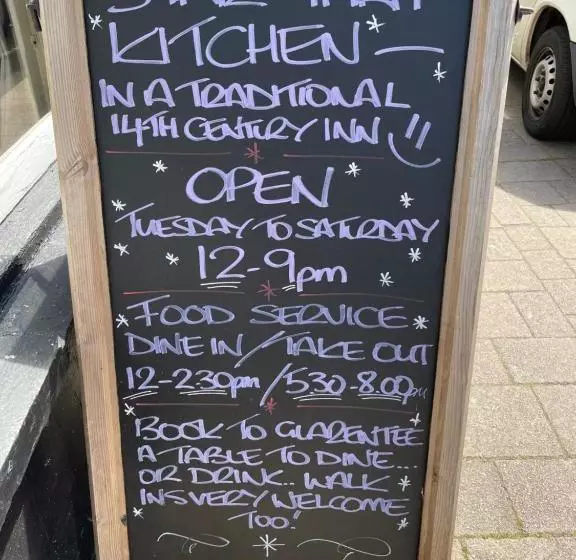 KITCHEN —
IN A TRADITIONAL
14TH CENTURY INN
OPEN
TUESDAY TO SATURDAY
12-9pm
FOOD SERVICE
DINE IN / TAKE OUT
12-2.30pm / 5.30-8.00pm
BOOK TO GUARENTEE
A TABLE TO DINE...
OR DRINK.. WALK
INS VERY WELCOME
TOO!